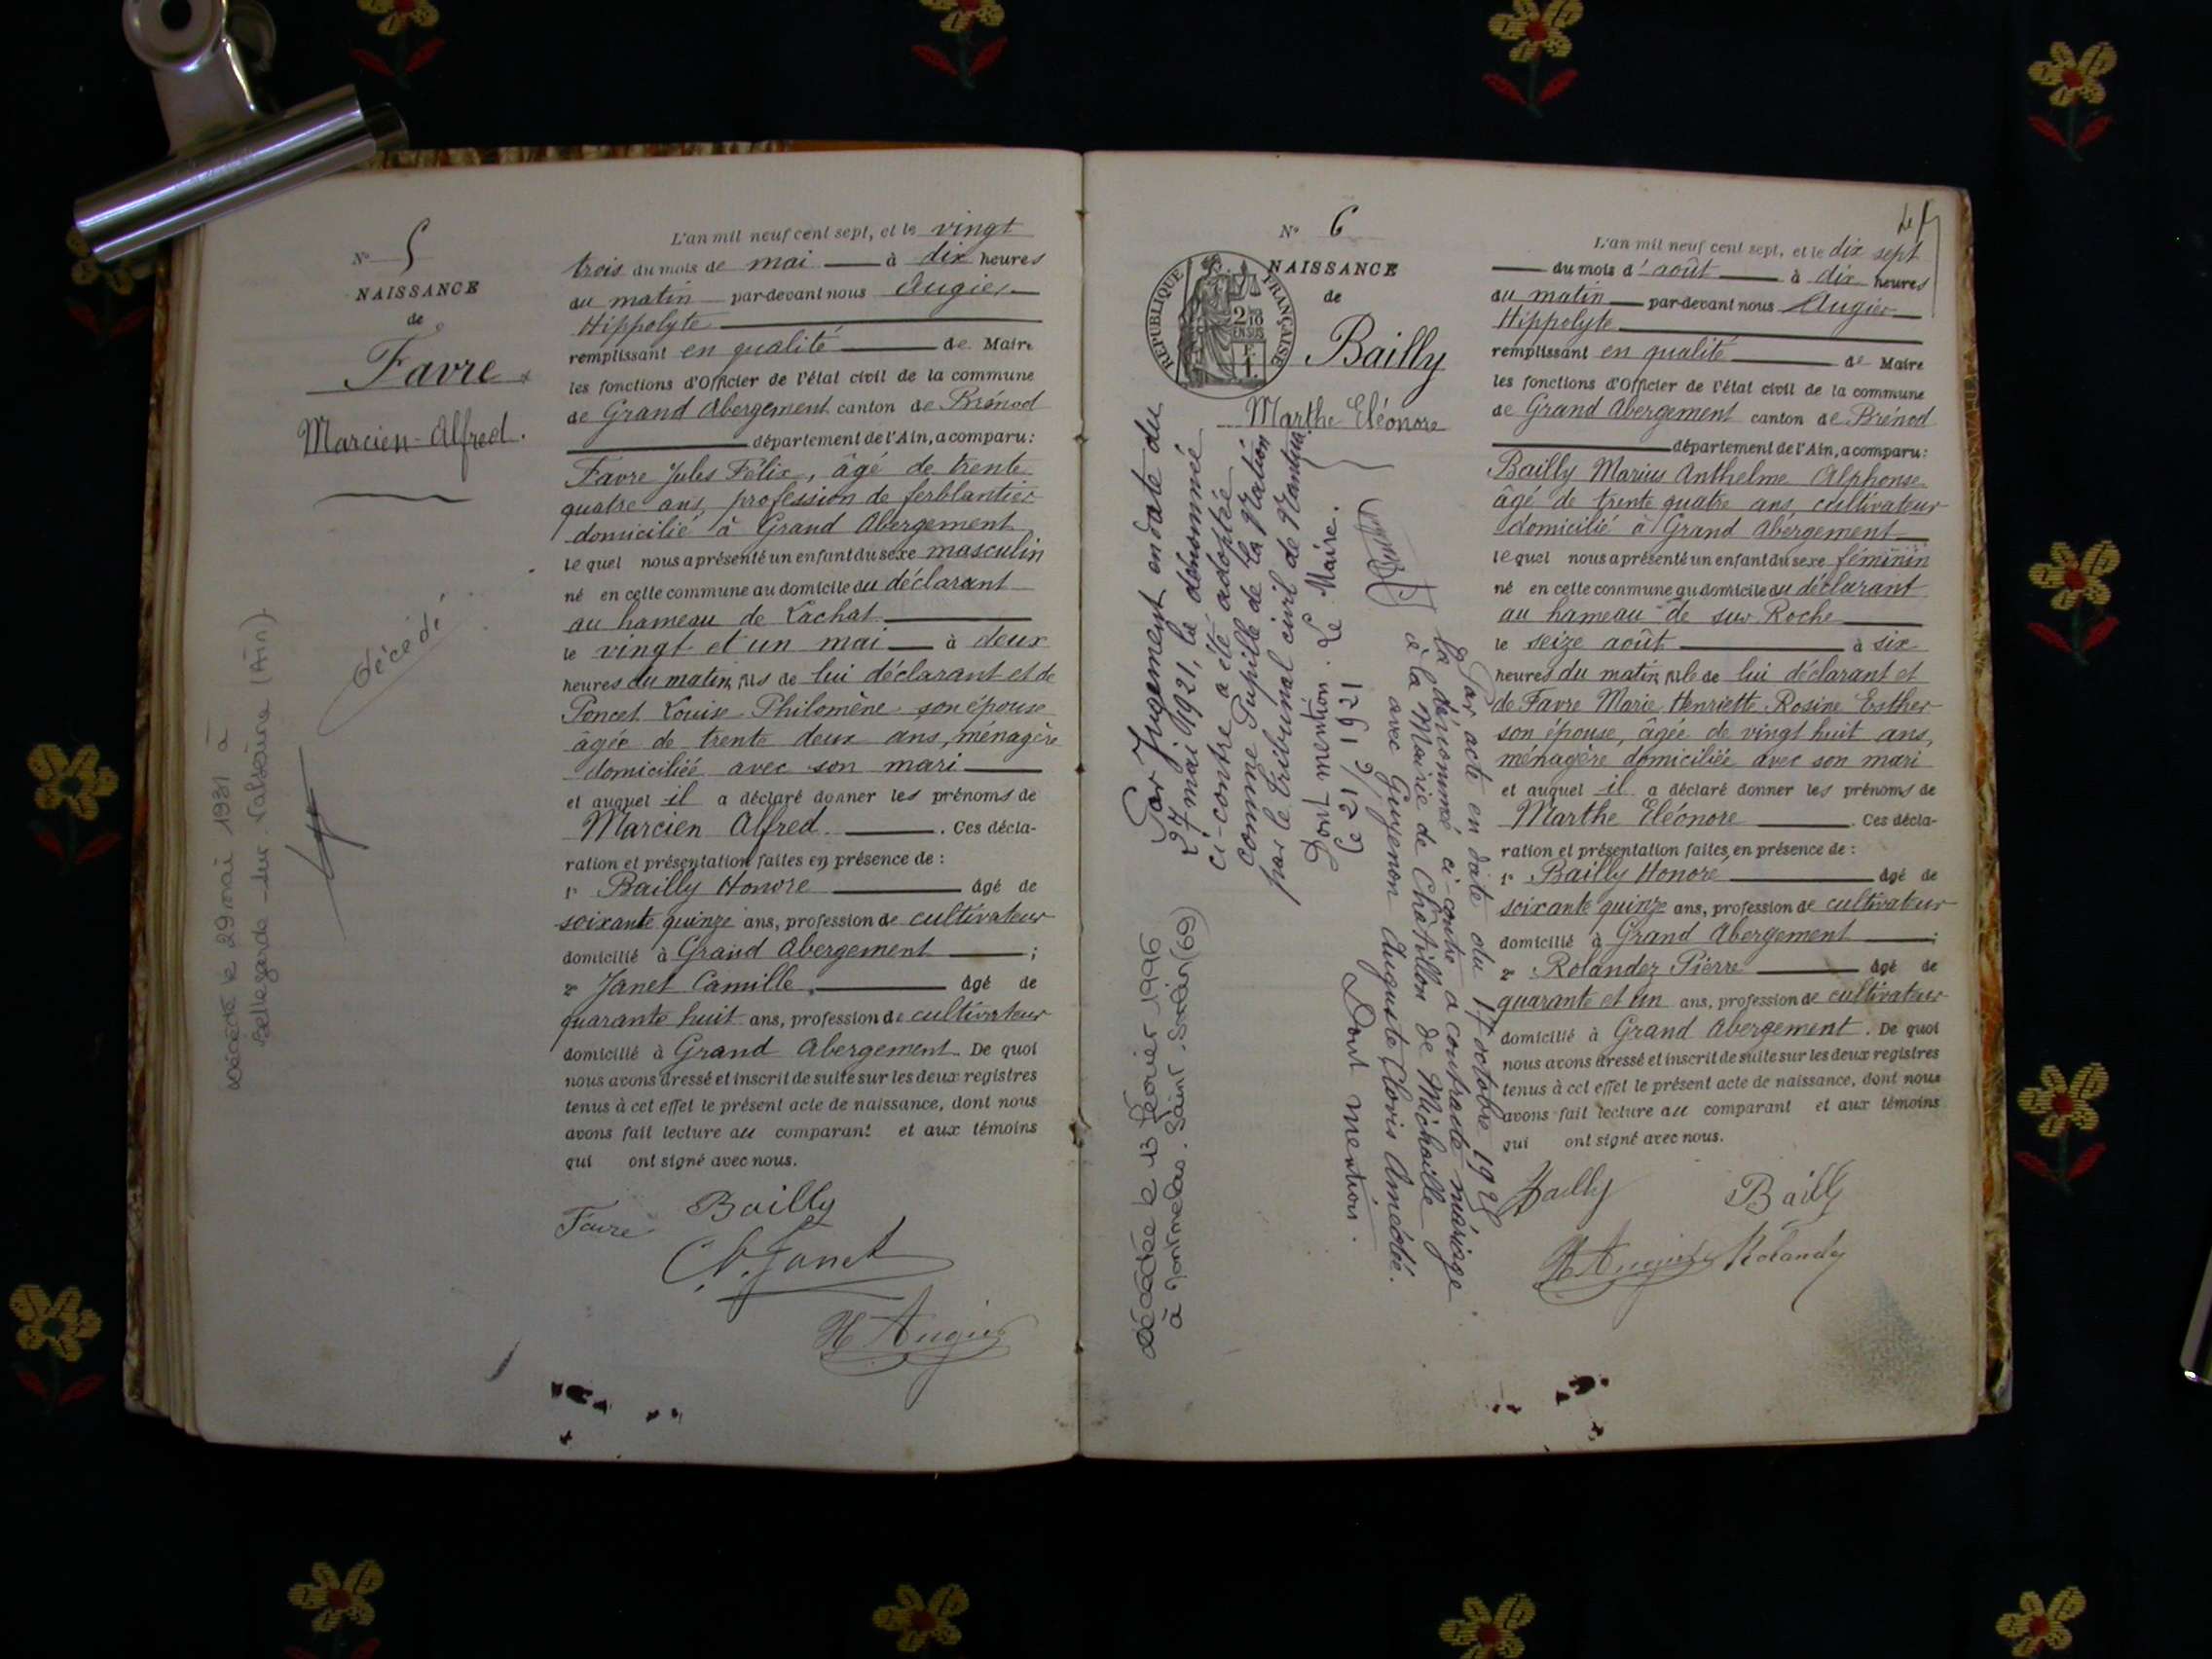 N° 5
NAISSANCE
de
Favre
Marcien-Alfred.
décédé
décédé le 29 mai 1981 à
Bellegarde-sur-Valserine (Ain)
L'an mil neuf cent sept, et le vingt
trois du mois de mai à dix heures
du matin par-devant nous Augier
Hippolyte
remplissant en qualité de Maire
les fonctions d'Officier de l'état civil de la commune
de Grand Abergement canton de Brénod
département de l'Ain, a comparu:
Favre Jules Félix, âgé de trente
quatre ans, profession de ferblantier
domicilié à Grand Abergement
lequel nous a présenté un enfant du sexe masculin
né en cette commune au domicile du déclarant
au hameau de Lachat
le vingt et un mai à deux
heures du matin, fils de lui déclarant et de
Poncet Louise Philomène son épouse
âgée de trente deux ans, ménagère
domiciliée avec son mari
et auquel il a déclaré donner les prénoms de
Marcien Alfred. Ces décla-
ration et présentation faites en présence de :
1° Bailly Honoré âgé de
soixante quinze ans, profession de cultivateur
domicilié à Grand Abergement ;
2° Janet Camille, âgé de
quarante huit ans, profession de cultivateur
domicilié à Grand Abergement. De quoi
nous avons dressé et inscrit de suite sur les deux registres
tenus à cet effet le présent acte de naissance, dont nous
avons fait lecture au comparant et aux témoins
qui ont signé avec nous.
Favre Bailly
C. Janet
H Augier
N° 6
NAISSANCE
de
REPUBLIQUE FRANÇAISE
2/10 EN SUS
F.
1.
Bailly
Marthe Eléonore
Par Jugement en date du
27 mai 1921, la dénommée
ci-contre a été adoptée
comme Pupille de la Nation
par le tribunal civil de Nantua.
Dont mention. Le Maire.
Ce 21/6 1921
Par acte en date du 17 octobre 1928
la dénommée ci-contre a contracté mariage
à la Mairie de Châtillon de Michaille
avec Guyenon Auguste Clovis Amédée.
Dont mention.
Décédée le 13 février 1996
à Montmelas-Saint-Sorlin (69)
L'an mil neuf cent sept, et le dix sept
du mois d'août à dix heures
du matin par-devant nous Augier
Hippolyte
remplissant en qualité de Maire
les fonctions d'Officier de l'état civil de la commune
de Grand Abergement canton de Brénod
département de l'Ain, a comparu:
Bailly Marius Anthelme Alphonse
âgé de trente quatre ans, cultivateur
domicilié à Grand Abergement
lequel nous a présenté un enfant du sexe féminin
né en cette commune au domicile du déclarant
au hameau de sur Roche
le seize août à six
heures du matin, fille de lui déclarant et
de Favre Marie Henriette Rosine Esther
son épouse, âgée de vingt huit ans,
ménagère domiciliée avec son mari
et auquel il a déclaré donner les prénoms de
Marthe Eléonore. Ces décla-
ration et présentation faites, en présence de :
1° Bailly Honoré âgé de
soixante quinze ans, profession de cultivateur
domicilié à Grand Abergement ;
2° Rolandez Pierre âgé de
quarante et un ans, profession de cultivateur
domicilié à Grand Abergement. De quoi
nous avons dressé et inscrit de suite sur les deux registres
tenus à cet effet le présent acte de naissance, dont nous
avons fait lecture au comparant et aux témoins
qui ont signé avec nous.
Bailly Bailly
H Augier Rolandez